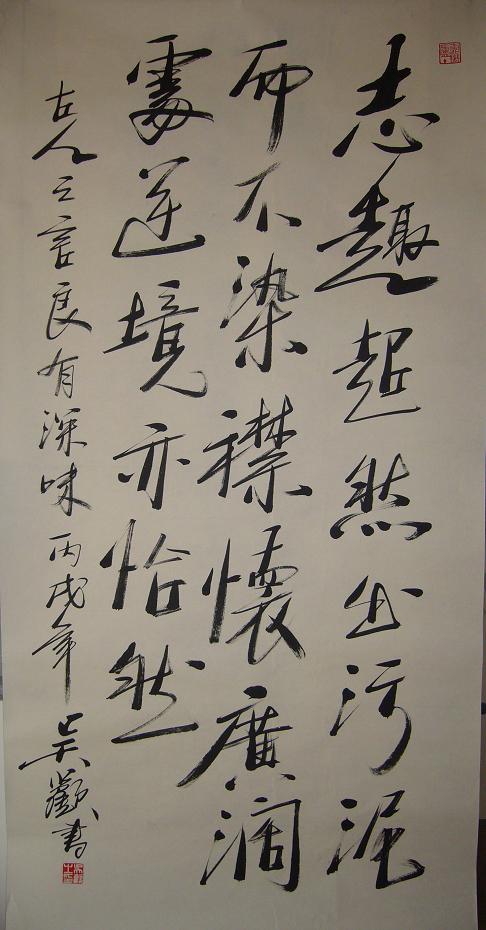 志趣超然出污泥
而不染襟懷廣濶
處逆境亦怡然
古人之言良有深味丙戌年吴歡書